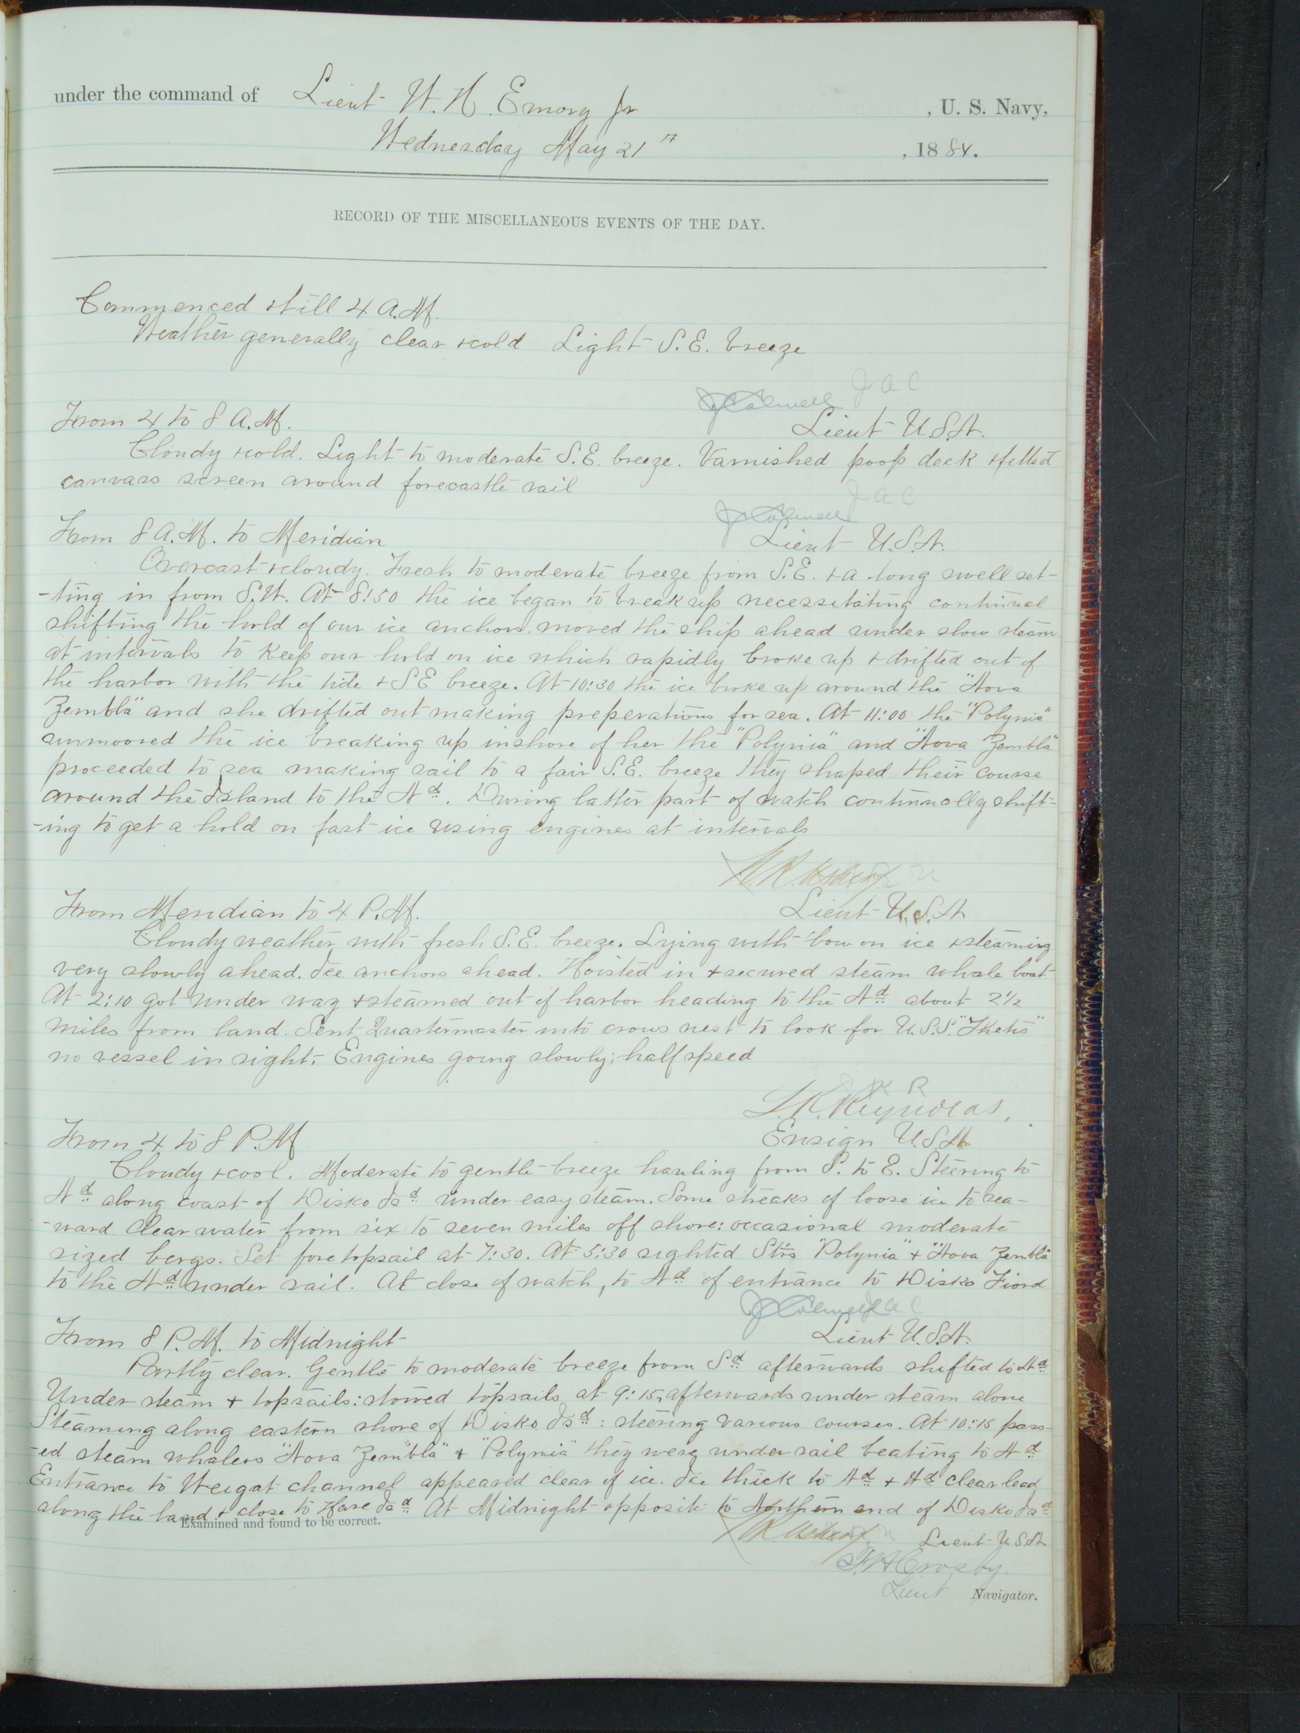 under the command of Lieut W. H. Emory Jr , U. S. Navy,
Wednesday May 21st , 1884.
RECORD OF THE MISCELLANEOUS EVENTS OF THE DAY.
Commenced & till 4 A.M.
Weather generally clear & cold Light S.E. breeze
J C Colwell J A C
From 4 to 8 A.M. Lieut U.S.N.
Cloudy & cold. Light to moderate S.E. breeze. Varnished poop deck & fitted
canvass screen around forecastle rail
J C Colwell J A C
From 8 A.M. to Meridian Lieut U.S.N.
Overcast & cloudy. Fresh to moderate breeze from S.E. & a long swell set-
-ting in from S.W. At 8:50 the ice began to break up necessitating continual
shifting the hold of our ice anchors. moved the ship ahead under slow steam
at intervals to keep our hold on ice which rapidly broke up & drifted out of
the harbor with the tide & SE breeze. At 10:30 the ice broke up around the "Nova
Zembla" and she drifted out making preperations for sea. At 11:00 the "Polynia"
unmoored the ice breaking up inshore of her the "Polynia" and "Nova Zembla"
proceeded to sea making sail to a fair S.E. breeze they shaped their course
around the Island to the Nd. During latter part of watch continually shift-
-ing to get a hold on fast ice using engines at intervals
From Meridian to 4 P.M. Lieut U.S.N
Cloudy weather, with fresh S.E. breeze. Lying with bow on ice & steaming
very slowly ahead. Ice anchors ahead. Hoisted in & secured steam whale boat
At 2:10 got under way & steamed out of harbor heading to the Nd about 2½
miles from land. Sent Quartermaster into crows nest to look for U.S.S. "Thetis"
no vessel in sight. Engines going slowly; half speed
S K R
L. K. Reynolds,
From 4 to 8 P.M Ensign U.S.N
Cloudy & cool. Moderate to gentle breeze hauling from S. to E. Steering to
Nd along coast of Disko Isd under easy steam. Some streaks of loose ice to sea-
-ward Clear water from six to seven miles off shore: occasional moderate
sized bergs. Set fore topsail at 7:30. At 5:30 sighted Strs "Polynia" & "Nova Zembla"
to the Nd under sail. At close of watch, to Nd of entrance to Disko Fiord
J C Colwell J A C
From 8 P.M. to Midnight Lieut U.S.N.
Partly clear. Gentle to moderate breeze from Sd afterwards shifted to Nd
Under steam & topsails: stowed topsails at 9:15, afterwards under steam alone
Steaming along eastern shore of Disko Isd: steering various courses. At 10:15 pass-
-ed steam whalers "Nova Zembla" & "Polynia" they were under sail beating to Nd
Entrance to Weigat channel appeared clear of ice. Ice thick to Nd & Wd clear lead
along the land & close to Hare Isd At Midnight opposite to Northern end of Disko Isd
Examined and found to be correct.
Lieut U S N
Lieut Navigator.